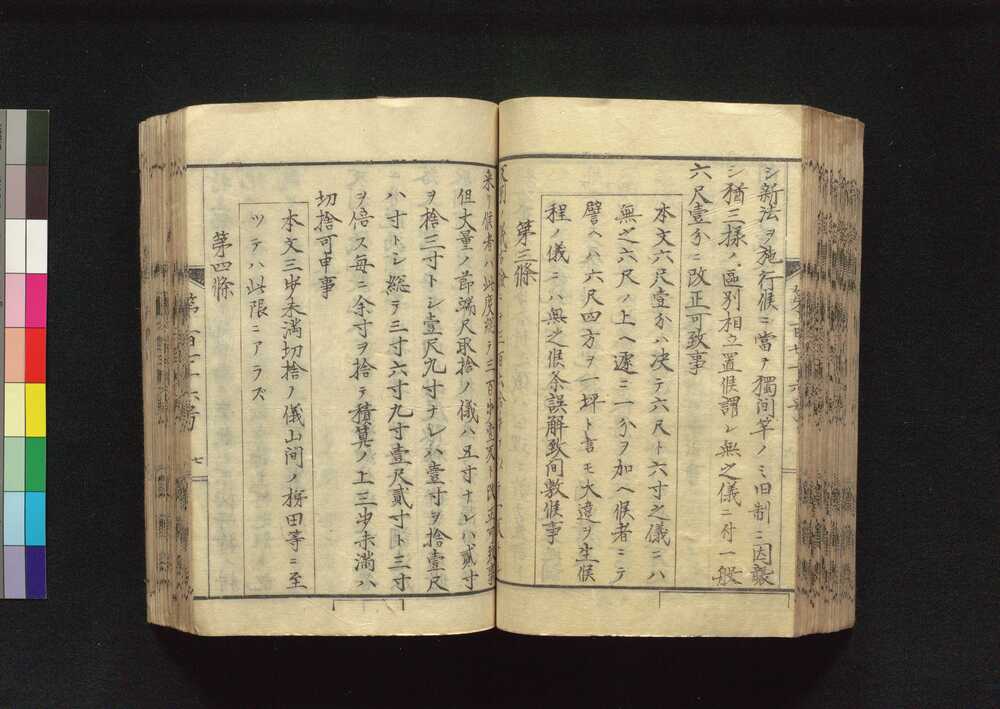 シ新法ヲ施行候ニ當テ獨间竿ノミ旧制ニ因襲
シ猶三様ノ區別相立置候謂レ無之儀ニ付一般
六尺壹分ニ改正可致事
本文六尺壹分ハ决テ六尺ト六寸之儀ニハ
無之六尺ノ上ヘ逐ニ一分ヲ加ヘ候者ニテ
譬ヘハ六尺四方ヲ一坪ト言モ大遠ヲ生候
程ノ儀ニハ無之候条誤解致间敷候事
第三條
来リ候者ハ此度
但大量ノ節端尺取捨ノ儀ハ五寸ナレハ貳寸
ヲ捨三寸トシ壹尺九寸ナレハ壹寸ヲ捨壹尺
ハ寸トシ総テ三寸六寸九寸壹尺貳寸ト三寸
ヲ倍ス毎ニ余寸ヲ捨テ積算ノ上三步未満ハ
切捨可申事
本文三步未満切捨ノ儀山间ノ
田等ニ至
ツテハ此限ニアラズ
第四條
七